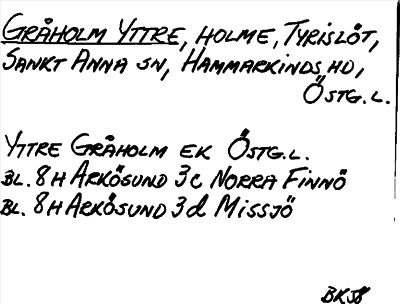 GRÅHOLM YTTRE, HOLME, TYRISLÖT,
SANKT ANNA SN, HAMMARKINDS HD,
ÖSTG.L.
YTTRE GRÅHOLM EK ÖSTG.L.
BL. 8H ARKÖSUND 3c NORRA FINNÖ
BL. 8H ARKÖSUND 3d MISSJÖ
BK58